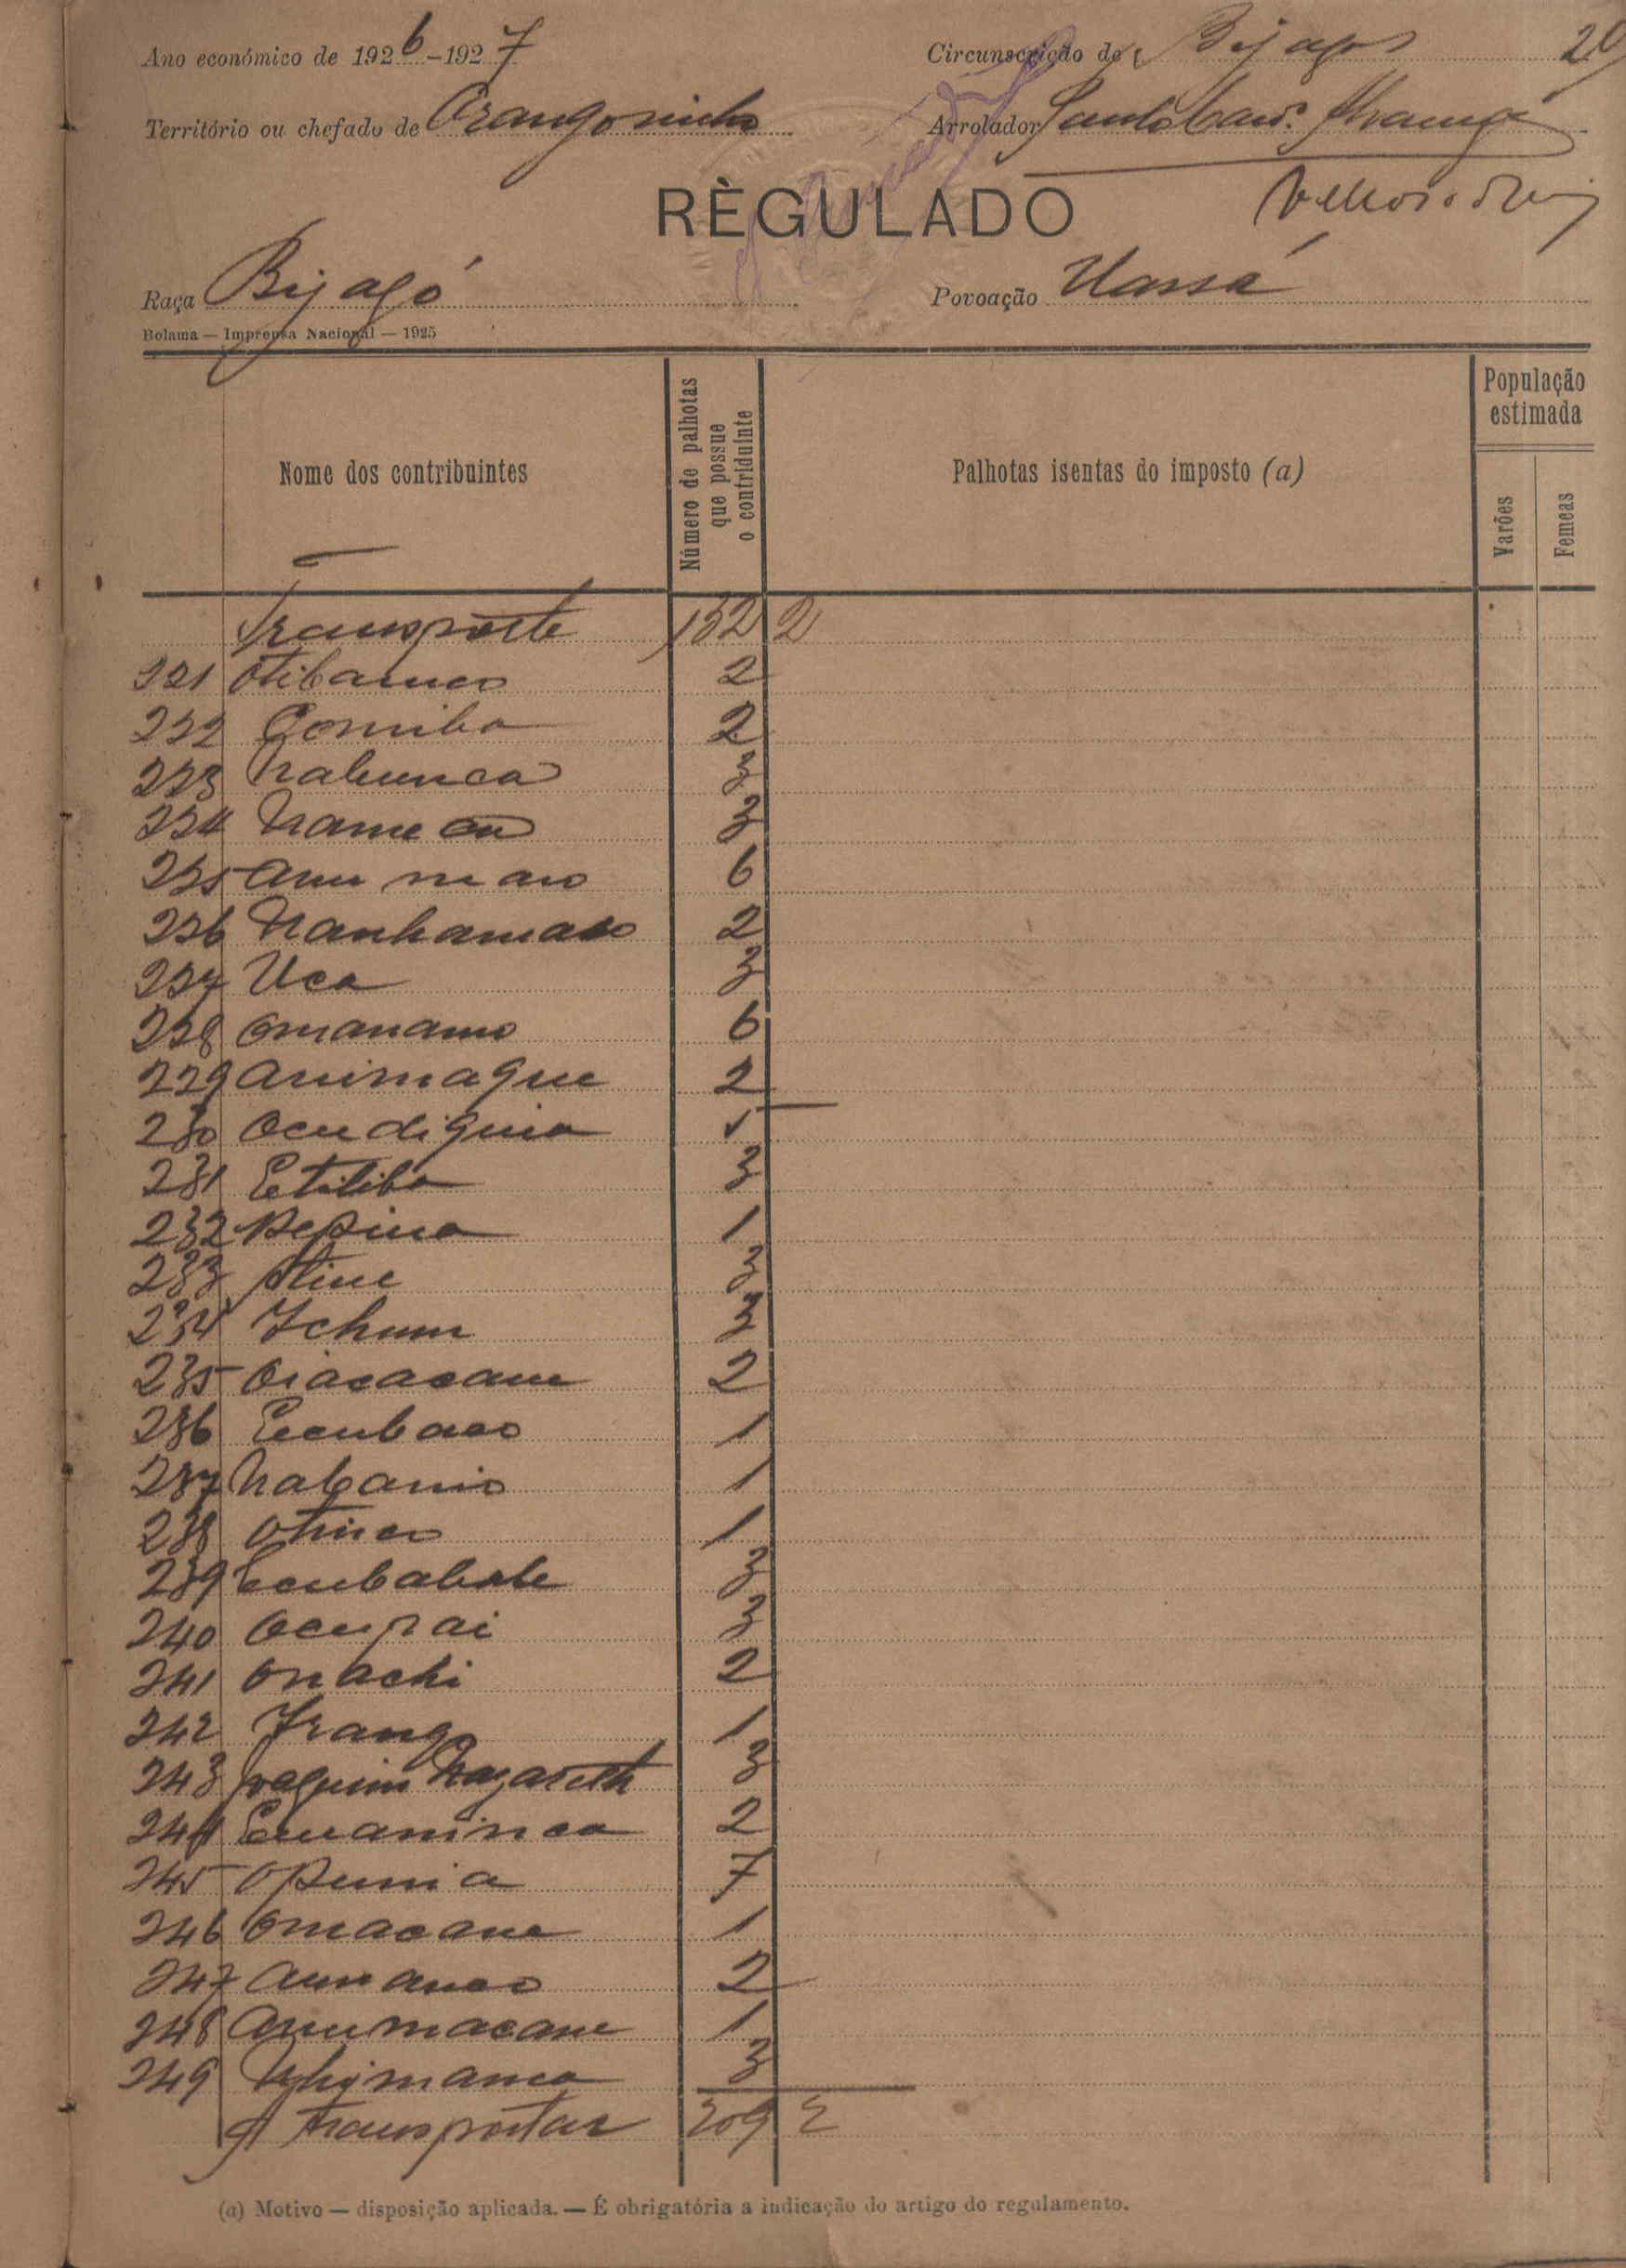 Ano económico de 1926-1927
Circunscrição de Bijagós 20
Território ou chefado de Orangosinho
Arrolador
RÈGULADO
Raça Bijagó
Povoação Uassá
Bolama — Imprensa Nacional — 1925
Nome dos contribuintes
Número de palhotas que possue o contriduinte
Palhotas isentas do imposto (a)
População estimada
Varões
Femeas
Transporte 152 2
221 Otibanco 2
222 Comiba 2
223 Nabunca 3
224 3
225 6
226 Nanhamaco 2
227 Uca 3
228 Omanamo 6
229 Animaque 2
230 Ocudiguia 1
231 Etitiba 3
232 Pepina 1
233 3
234 Ichum 3
235 Oiacacane 2
236 Ecubaco 1
237 Nabanio 1
238 Otinco 1
239 Ecubabate 3
240 Ocupai 3
241 Onachi 2
242 Frango 1
243 Joaquim Nazareth 3
244 2
245 Opumia 7
246 Omacane 1
247 2
248 Anumacane 1
249 3
A transportar 209 2
(a) Motivo — disposição aplicada. — É obrigatória a indicação do artigo do regulamento.